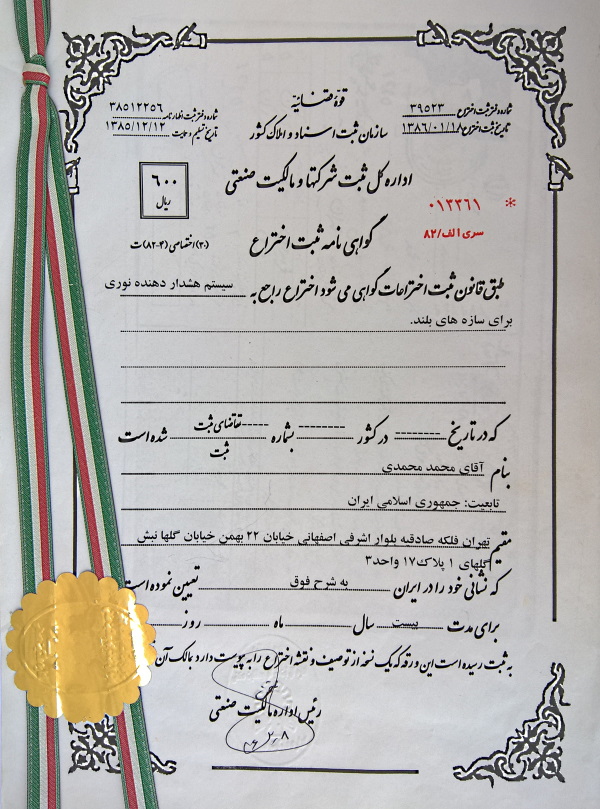 قوۀ قضائیّه
شماره دفتر ثبت اختراع ۳۹۵۲۳
شماره دفتر ثبت اظهارنامه ۳۸۵۱۲۲۵۶
سازمان ثبت اسناد و املاک کشور
تاریخ ثبت اختراع ۱۳۸۶/۰۱/۱۸
تاریخ تسلیم و حمایت ۱۳۸۵/۱۲/۱۲
اداره کل ثبت شرکتها و مالکیت صنعتی
۶۰۰
ریال
* ۰۱۲۲۶۱
سری الف/۸۲
گواهی نامه ثبت اختراع
(۲۰) اختصاصی (۴-۸۲) ت
طبق قانون ثبت اختراعات گواهی می شود اختراع راجع به سیستم هشدار دهنده نوری
برای سازه های بلند.
که در تاریخ -------- در کشور -------- بشماره ----- تقاضای ثبت شده است
ثبت
بنام آقای محمد محمدی
تابعیت: جمهوری اسلامی ایران
مقیم تهران فلکه صادقیه بلوار اشرفی اصفهانی خیابان ۲۲ بهمن خیابان گلها نبش
گلهای ۱ پلاک ۱۷ واحد۳
که نشانی خود را در ایران به شرح فوق تعیین نموده است
برای مدت بیست سال ماه روز
به ثبت رسیده است این ورقه که یک نسخه از توصیف و نقشه اختراع را به پیوست دارد بمالک آن
رئیس اداره مالکیت صنعتی